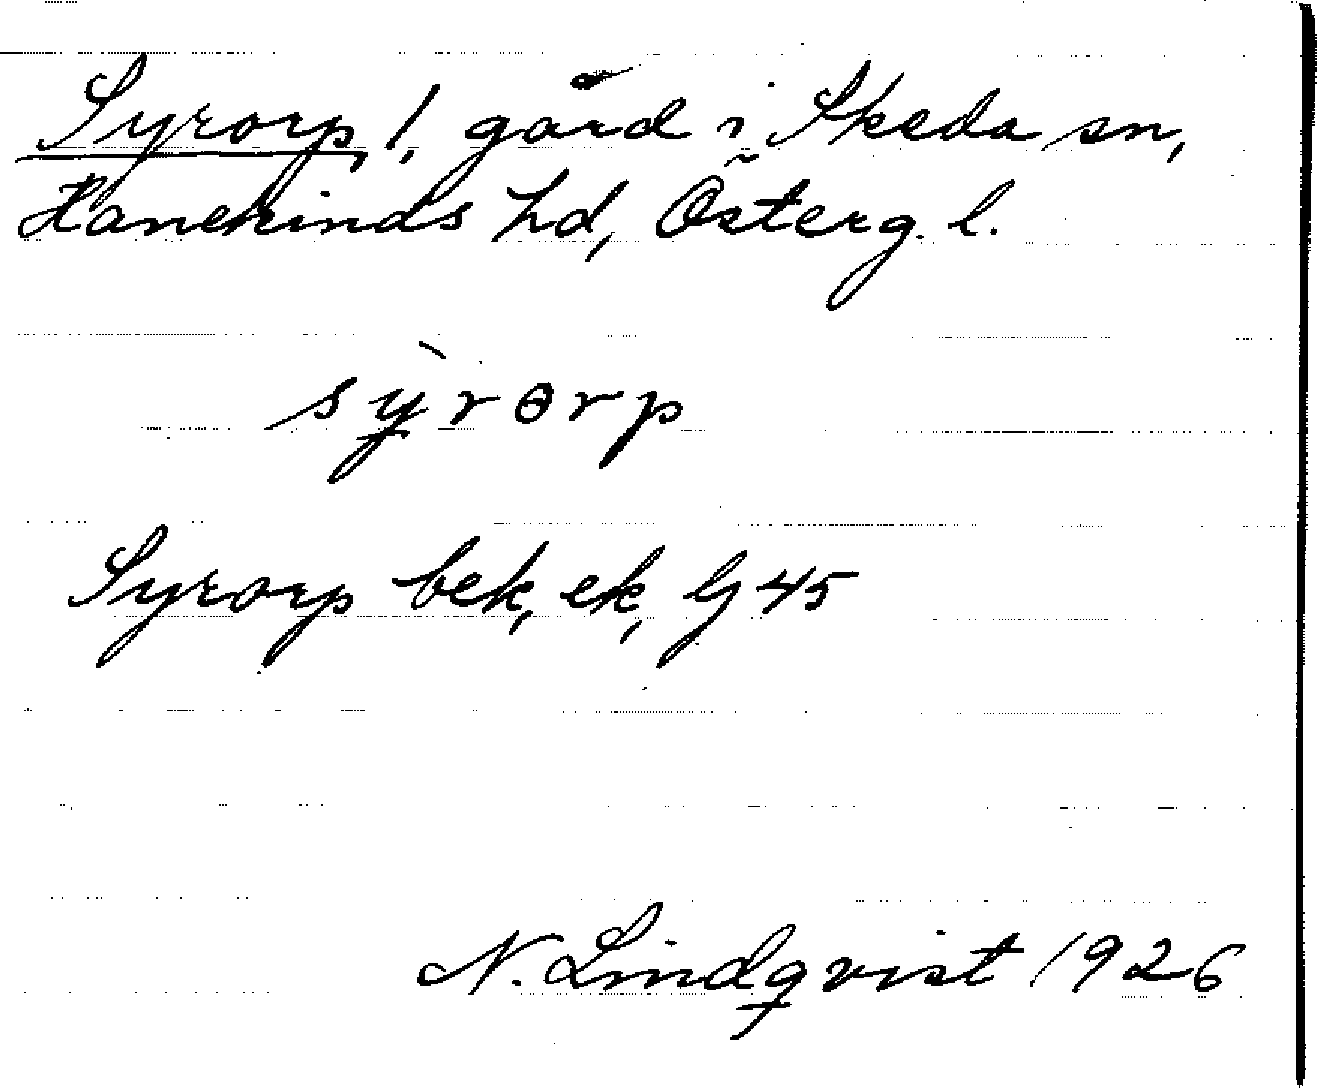 Syrorp, 1, gård i Skeda sn,
Hanekinds hd, Österg. l.
sỳ̠rɵrp
Syrorp bek, ek, G 45
N. Lindqvist 1926